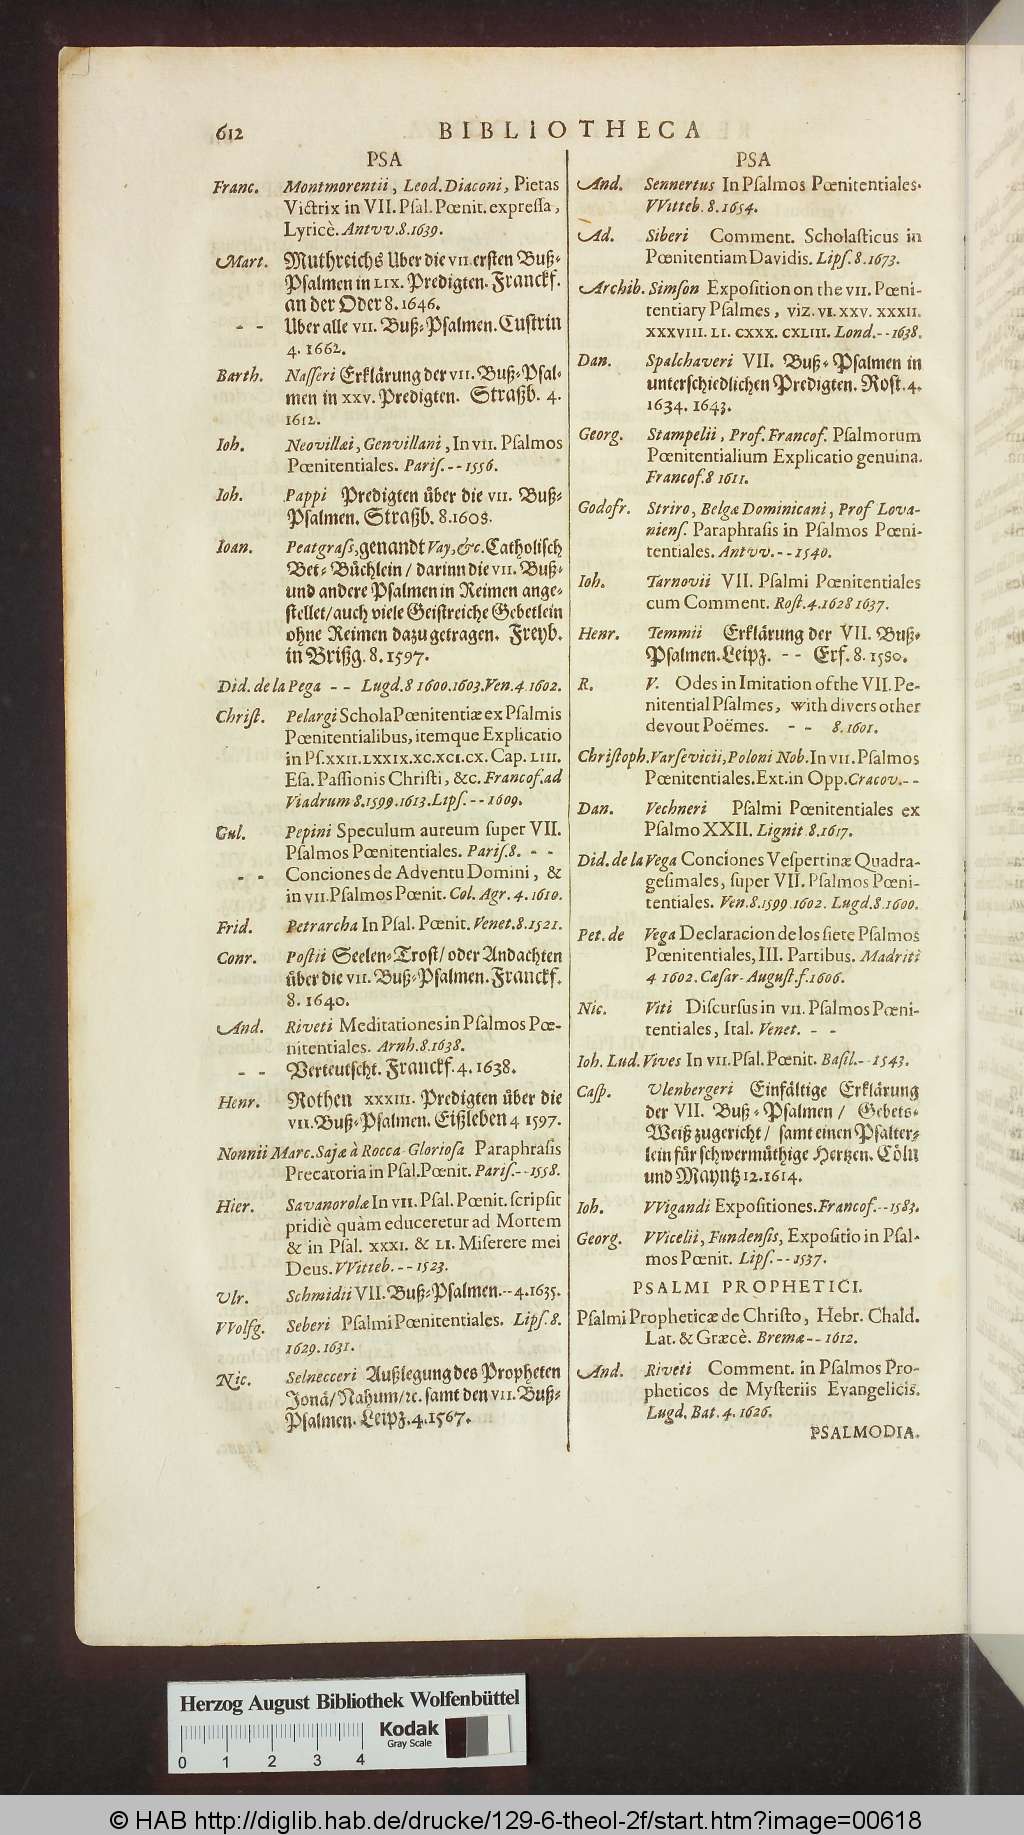 612
BIBLIOTHECA
PSA
Franc. Montmorentii, Leod. Diaconi, Pietas
Victrix in VII. Pſal. Pœnit. expreſſa,
Lyricè. Antvv. 8. 1639.
Mart. Muthreichs Uber die VII. erſten Buß-
Pſalmen in LIX. Predigten. Franckf.
an der Oder 8. 1646.
- - Uber alle VII. Buß-Pſalmen. Cuſtrin
4. 1662.
Barth. Naſſeri Erklärung der VII. Buß-Pſal-
men in XXV. Predigten. Straßb. 4.
1612.
Ioh. Neovillæi, Genvillani, In VII. Pſalmos
Pœnitentiales. Pariſ. - - 1556.
Ioh. Pappi Predigten über die VII. Buß-
Pſalmen. Straßb. 8. 1608.
Ioan. Peatgraſs, genandt Vay, &c. Catholiſch
Bet-Büchlein / darinn die VII. Buß-
und andere Pſalmen in Reimen ange-
ſtellet / auch viele Geiſtreiche Gebetlein
ohne Reimen dazu getragen. Freyb.
in Brißg. 8. 1597.
Did. de la Pega - - Lugd. 8 1600. 1603. Ven. 4. 1602.
Chriſt. Pelargi Schola Pœnitentiæ ex Pſalmis
Pœnitentialibus, itemque Explicatio
in Pſ. XXII. LXXIX. XC. XCI. CX. Cap. LIII.
Eſa. Paſſionis Chriſti, &c. Francof. ad
Viadrum 8. 1599. 1613. Lipſ. - - 1609.
Gul. Pepini Speculum aureum ſuper VII.
Pſalmos Pœnitentiales. Pariſ. 8. - -
- - Conciones de Adventu Domini, &
in VII. Pſalmos Pœnit. Col. Agr. 4. 1610.
Frid. Petrarcha In Pſal. Pœnit. Venet. 8. 1521.
Conr. Poſtii Seelen-Troſt / oder Andachten
über die VII. Buß-Pſalmen. Franckf.
8. 1640.
And. Riveti Meditationes in Pſalmos Pœ-
nitentiales. Arnh. 8. 1638.
- - Verteutſcht. Franckf. 4. 1638.
Henr. Rothen XXXIII. Predigten über die
VII. Buß-Pſalmen. Eißleben 4 1597.
Nonnii Marc. Sajæ à Rocca Glorioſa Paraphraſis
Precatoria in Pſal. Pœnit. Pariſ. - - 1558.
Hier. Savanorolæ In VII. Pſal. Pœnit. ſcripſit
pridiè quàm educeretur ad Mortem
& in Pſal. XXXI. & LI. Miſerere mei
Deus. VVitteb. - - 1523.
Vlr. Schmidii VII. Buß-Pſalmen. - - 4. 1635.
VVolfg. Seberi Pſalmi Pœnitentiales. Lipſ. 8.
1629. 1631.
Nic. Selnecceri Außlegung des Propheten
Jonä / Nahum / ꝛc. ſamt den VII. Buß-
Pſalmen. Leipz. 4. 1567.
PSA
And. Sennertus In Pſalmos Pœnitentiales.
VVitteb. 8. 1654.
Ad. Siberi Comment. Scholaſticus in
Pœnitentiam Davidis. Lipſ. 8. 1673.
Archib. Simſon Expoſition on the VII. Pœni-
tentiary Pſalmes, viz. VI. XXV. XXXII.
XXXVIII. LI. CXXX. CXLIII. Lond. - - 1638.
Dan. Spalchaveri VII. Buß-Pſalmen in
unterſchiedlichen Predigten. Roſt. 4.
1634. 1643.
Georg. Stampelii, Prof. Francof. Pſalmorum
Pœnitentialium Explicatio genuina.
Francof. 8 1611.
Godofr. Striro, Belgæ Dominicani, Prof Lova-
nienſ. Paraphraſis in Pſalmos Pœni-
tentiales. Antvv. - - 1540.
Ioh. Tarnovii VII. Pſalmi Pœnitentiales
cum Comment. Roſt. 4. 1628 1637.
Henr. Temmii Erklärung der VII. Buß-
Pſalmen. Leipz. - - Erf. 8. 1580.
R. V. Odes in Imitation of the VII. Pe-
nitential Pſalmes, with divers other
devout Poëmes. - - 8. 1601.
Chriſtoph. Varſevicii, Poloni Nob. In VII. Pſalmos
Pœnitentiales. Ext. in Opp. Cracov. - -
Dan. Vechneri Pſalmi Pœnitentiales ex
Pſalmo XXII. Lignit 8. 1617.
Did. de la Vega Conciones Veſpertinæ Quadra-
geſimales, ſuper VII. Pſalmos Pœni-
tentiales. Ven. 8. 1599 1602. Lugd. 8. 1600.
Pet. de Vega Declaracion de los ſiete Pſalmos
Pœnitentiales, III. Partibus. Madriti
4 1602. Cæſar-Auguſt. f. 1606.
Nic. Viti Diſcurſus in VII. Pſalmos Pœni-
tentiales, Ital. Venet. - -
Ioh. Lud. Vives In VII. Pſal. Pœnit. Baſil. - - 1543.
Caſp. Vlenbergeri Einfältige Erklärung
der VII. Buß-Pſalmen / Gebets-
Weiß zugericht / ſamt einen Pſalter-
lein für ſchwermüthige Hertzen. Cöln
und Mayntz 12. 1614.
Ioh. VVigandi Expoſitiones. Francof. - - 1583.
Georg. VVicelii, Fundenſis, Expoſitio in Pſal-
mos Pœnit. Lipſ. - - 1537.
PSALMI PROPHETICI.
Pſalmi Propheticæ de Chriſto, Hebr. Chald.
Lat. & Græcè. Bremæ - - 1612.
And. Riveti Comment. in Pſalmos Pro-
pheticos de Myſteriis Evangelicis.
Lugd. Bat. 4. 1626.
PSALMODIA.
Herzog August Bibliothek Wolfenbüttel
Kodak
Gray Scale
0 1 2 3 4
© HAB http://diglib.hab.de/drucke/129-6-theol-2f/start.htm?image=00618